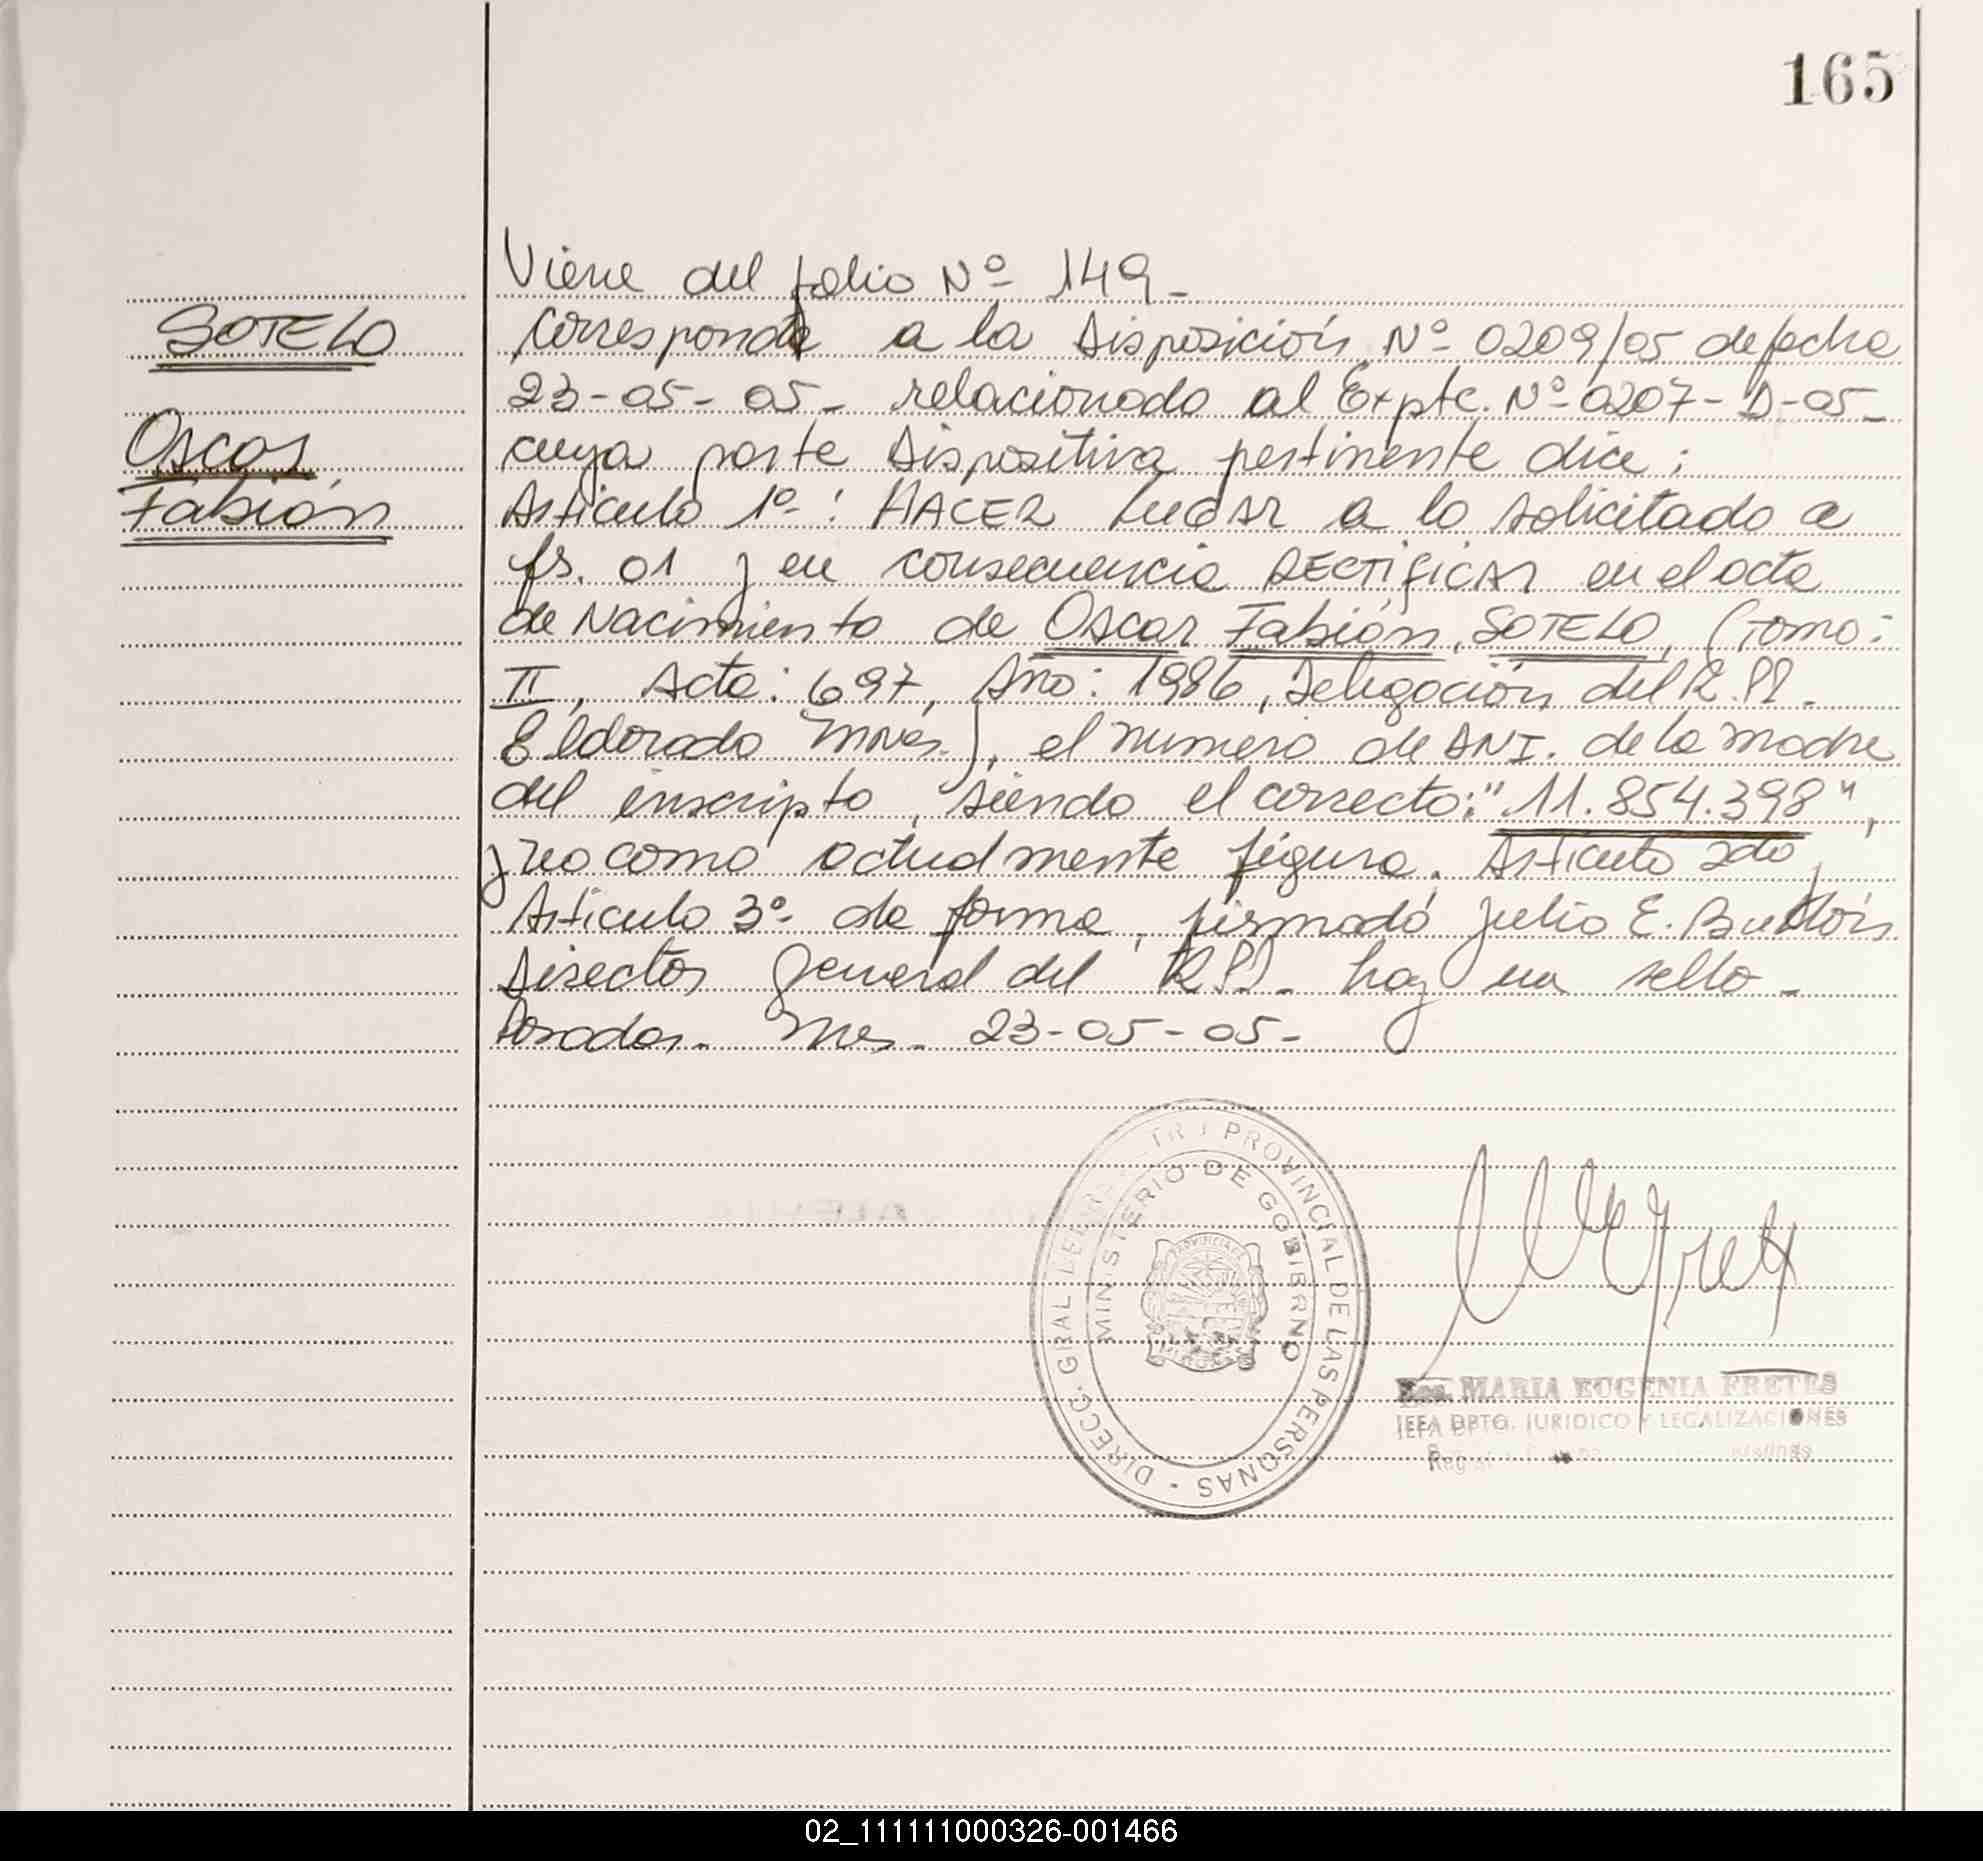 165
Viene del folio Nº 149-
SOTELO
Corresponde a la Disposición Nº 0209/05 de fecha
23-05-05- relacionado al Expte. Nº 0207-D-05-
Oscar
cuya parte Dispositiva pertinente dice:
Fabián
Artículo 1º: HACER LUGAR a lo solicitado a
fs. 01 y en consecuencia RECTIFICAR en el acta
de Nacimiento de Oscar Fabián SOTELO (Tomo:
II, Acta: 697, Año: 1986, Delegación del R.P.P.
Eldorado Mnes.), el numero de DNI. de la madre
del inscripto, siendo el correcto: "11.854.398",
y no como actualmente figura. Artículo 2do,
Artículo 3º de forma, firmado Julio E.
Director General del R.P.P. hay un sello-
Posadas- Mnes- 23-05-05-
DIRECC. GRAL DEL PROVINCIAL DE LAS PERSONAS -
MINISTERIO DE GOBIERNO
MARIA EUGENIA FRETES
JEFA DPTO. JURIDICO Y LEGALIZACIONES
02_111111000326-001466